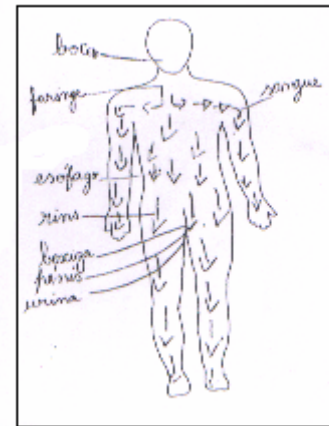 boca
faringe
sangue
esófago
rins
bexiga
pénis
urina